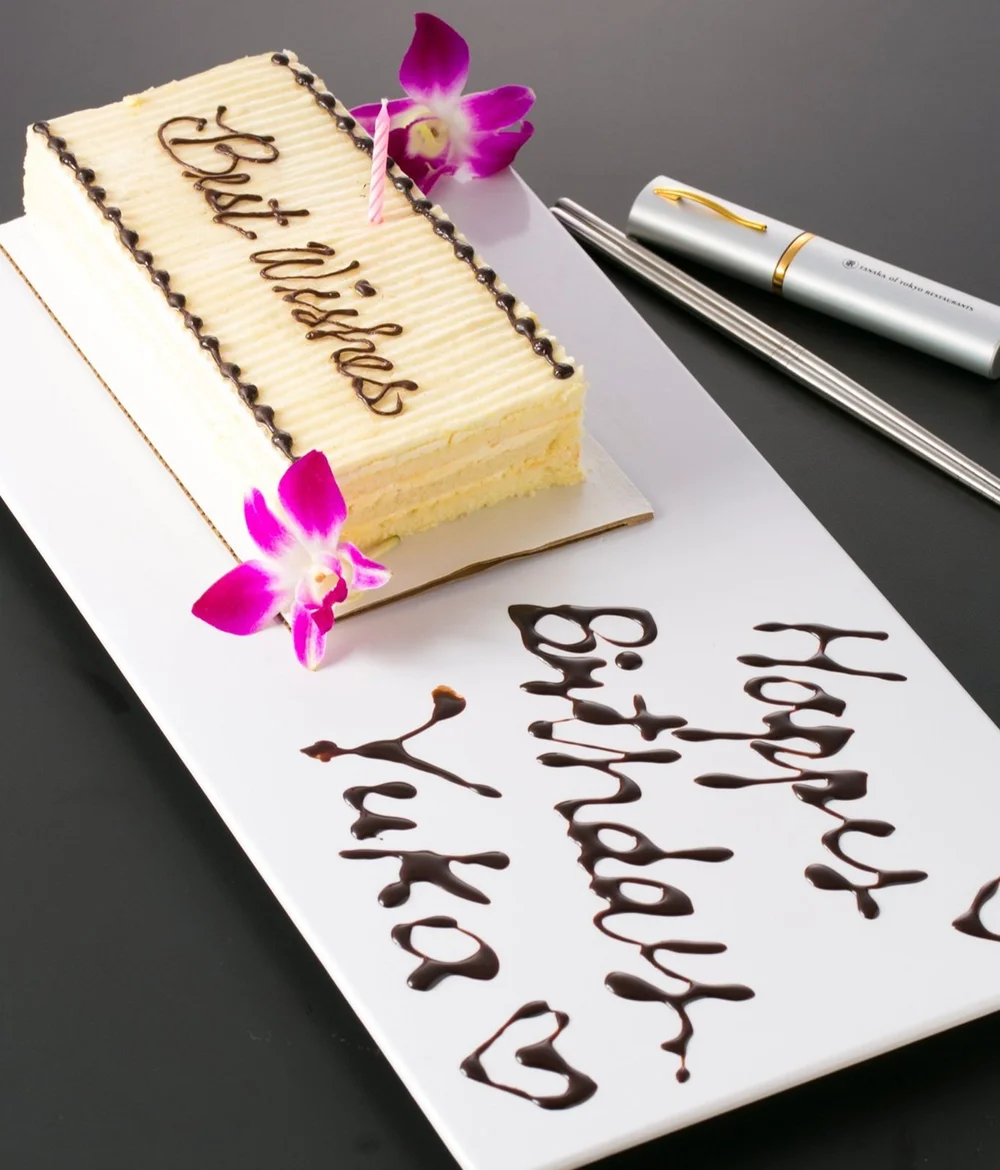 Best
Wishes
TANAKA of TOKYO RESTAURANTS
Happy
Birthday
Yuka